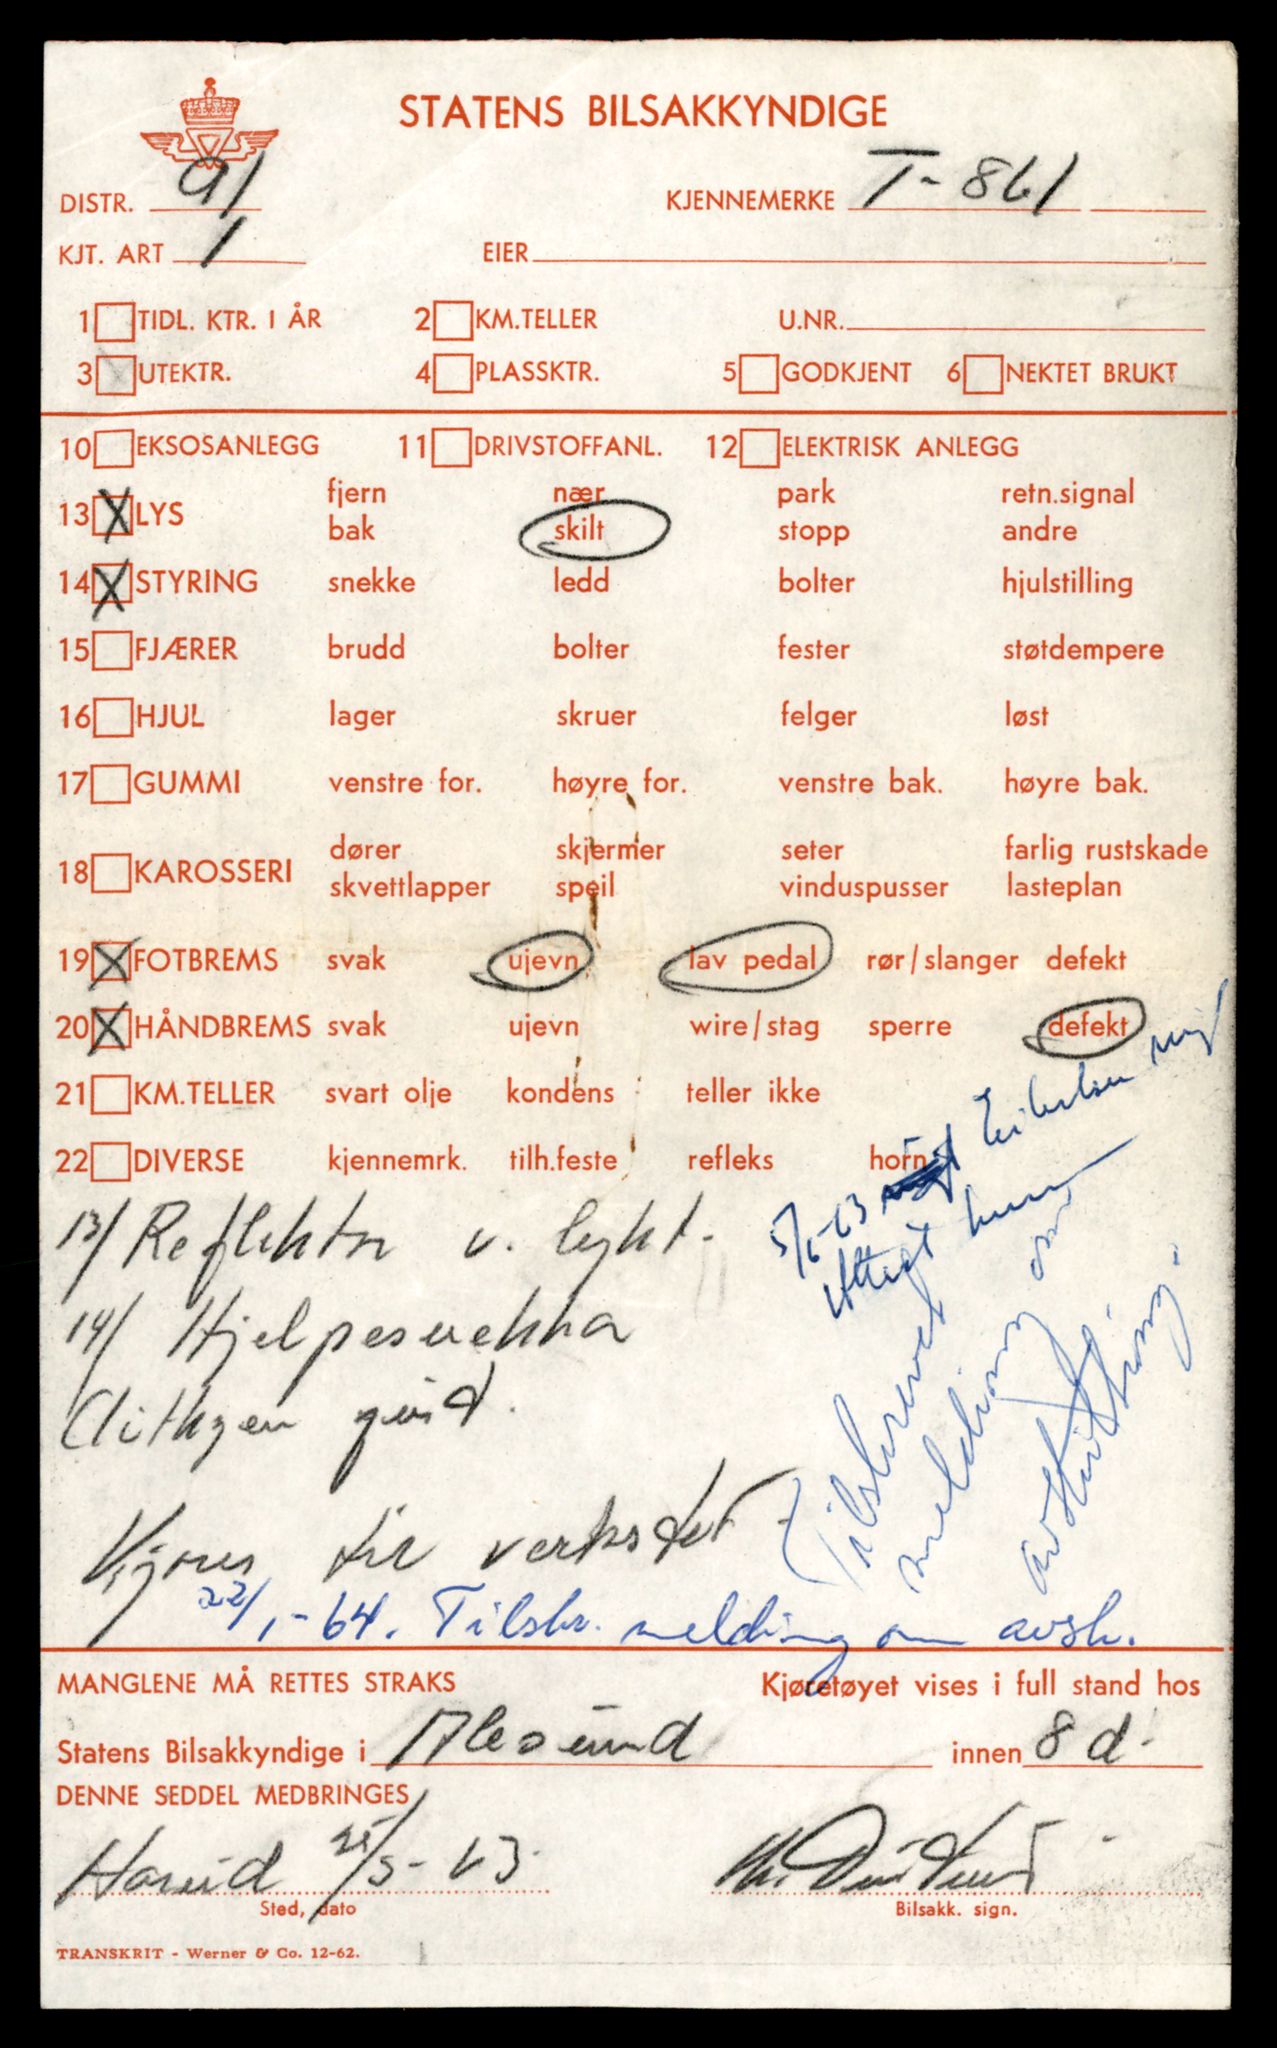 STATENS BILSAKKYNDIGE
DISTR. 91 KJENNEMERKE T-861
KJT. ART 1 EIER
1 TIDL. KTR. I ÅR 2 KM.TELLER U.NR.
3 UTEKTR. 4 PLASSKTR. 5 GODKJENT 6 NEKTET BRUKT
10 EKSOSANLEGG 11 DRIVSTOFFANL. 12 ELEKTRISK ANLEGG
fjern nær park retn.signal
13 X LYS
bak skilt stopp andre
14 X STYRING snekke ledd bolter hjulstilling
15 FJÆRER brudd bolter fester støtdempere
16 HJUL lager skruer felger løst
17 GUMMI venstre for. høyre for. venstre bak. høyre bak.
dører skjermer seter farlig rustskade
18 KAROSSERI
skvettlapper speil vinduspusser lasteplan
19 X FOTBREMS svak ujevn lav pedal rør/slanger defekt
20 X HÅNDBREMS svak ujevn wire/stag sperre defekt
21 KM.TELLER svart olje kondens teller ikke
22 DIVERSE kjennemrk. tilh.feste refleks horn
5/6-63
13/ Reflektor v. lykt.
14/ Hjelpesnekka
Tilskrevet
melding om
avskilting.
til verksted
22/1-64. Tilskr. melding om avsk.
MANGLENE MÅ RETTES STRAKS Kjøretøyet vises i full stand hos
Statens Bilsakkyndige i Ålesund innen 8 d.
DENNE SEDDEL MEDBRINGES
Hareid 25/5-63.
Sted, dato Bilsakk. sign.
TRANSKRIT - Werner & Co. 12-62.